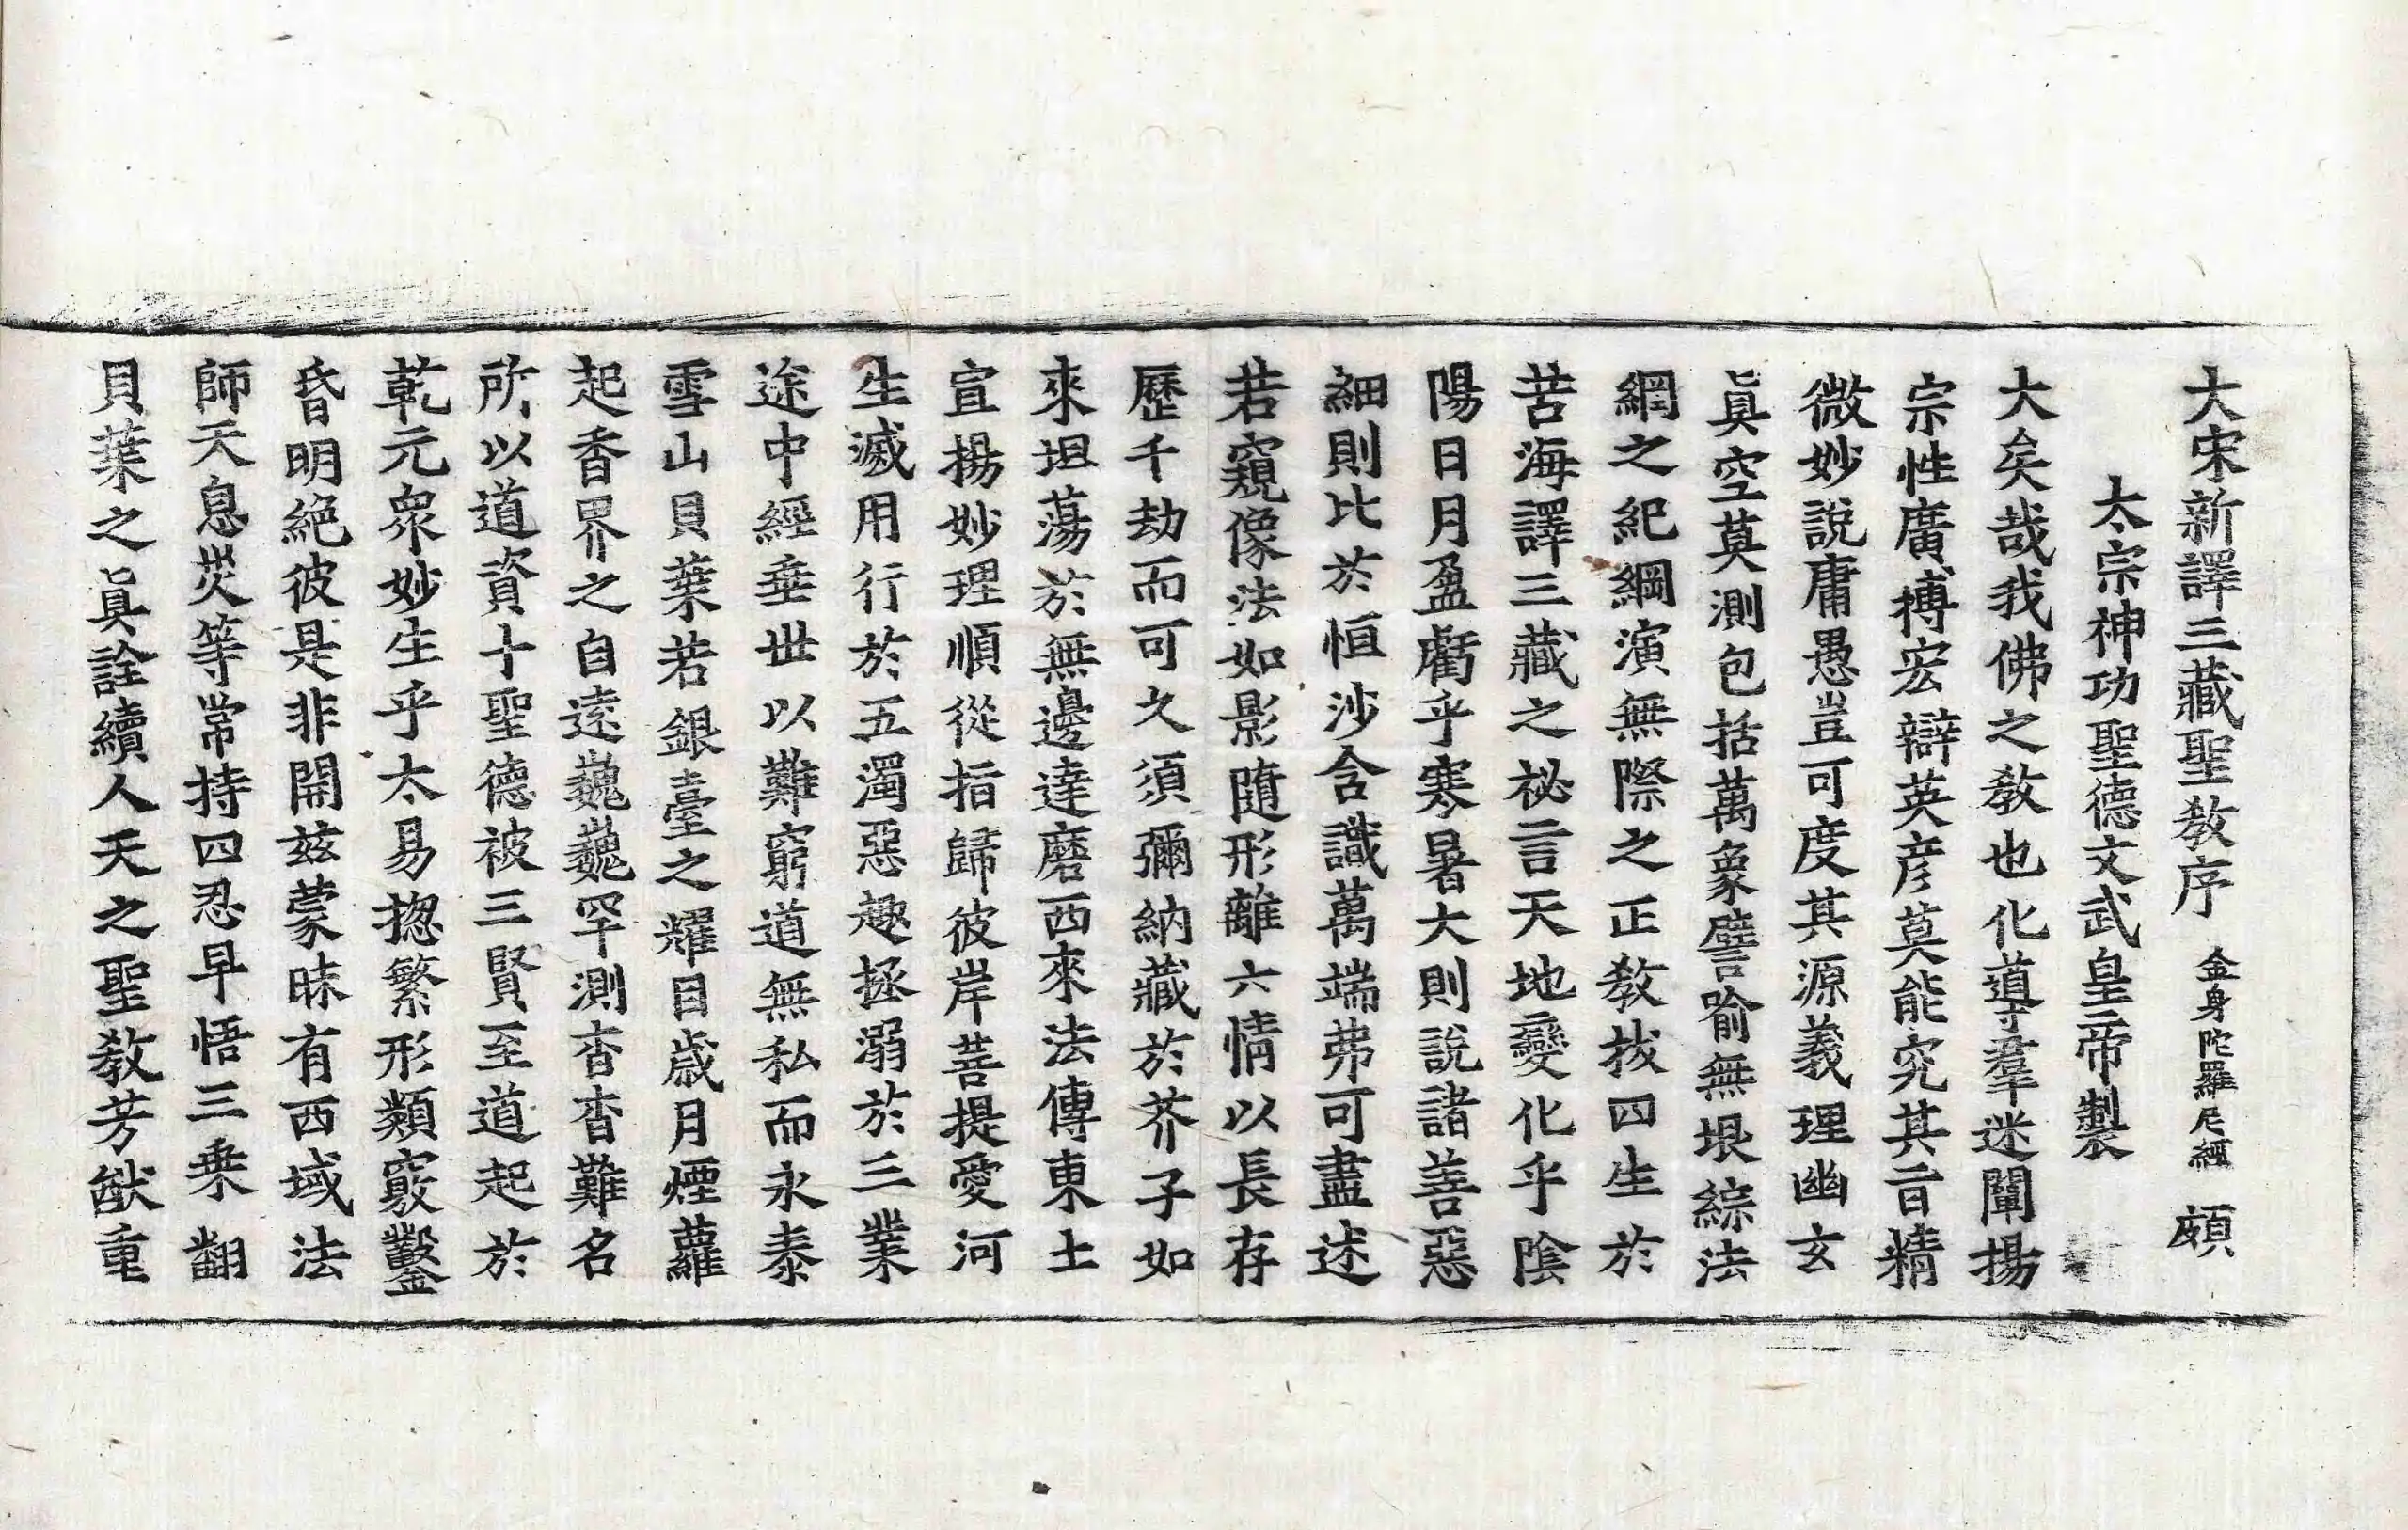 大宋新譯三藏聖教序 金身陀羅尼經 頗
太宗神功聖德文武皇帝製
大矣哉我佛之教也化導羣迷闡揚
宗性廣博宏辯英彦莫能究其旨精
微妙說庸愚豈可度其源義理幽玄
眞空莫測包括萬象譬喻無垠綜法
網之紀綱演無際之正教拔四生於
苦海譯三藏之祕言天地變化乎陰
陽日月盈虧乎寒暑大則說諸善惡
細則比於恒沙含識萬端弗可盡述
若窺像法如影隨形離六情以長存
歷千劫而可久須彌納藏於芥子如
來坦蕩於無邊達磨西來法傳東土
宣揚妙理順從指歸彼岸菩提愛河
生滅用行於五濁惡趣拯溺於三業
途中經垂世以難窮道無私而永泰
雪山貝葉若銀臺之耀目歳月煙蘿
起香界之自遠巍巍罕測杳杳難名
所以道資十聖德被三賢至道起於
乾元衆妙生乎太易揔繁形類竅鑿
昏明絶彼是非開兹蒙昧有西域法
師天息災等常持四忍早悟三乗翻
貝葉之眞詮續人天之聖教芳猷重